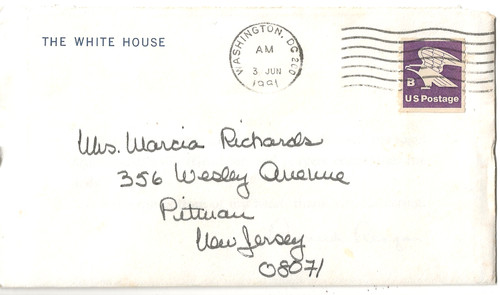 THE WHITE HOUSE
WASHINGTON, DC 200
AM
3 JUN
1981
B
US Postage
Mrs. Marcia Richards
356 Wesley Avenue
Pitman
New Jersey
08071